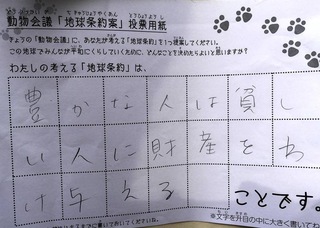 動物会議「地球条約案」投票用紙
きょうの「動物会議」に、あなたが考える「地球条約」を1つ提案してください。
この地球でみんなが平和にくらしていくために、どんなことを決めたらよいと思いますか?
わたしの考える「地球条約」は、
豊かな人は貧し
い人に財産をわ
け与える
ことです。
※文字を升目の中に大きく書いてね